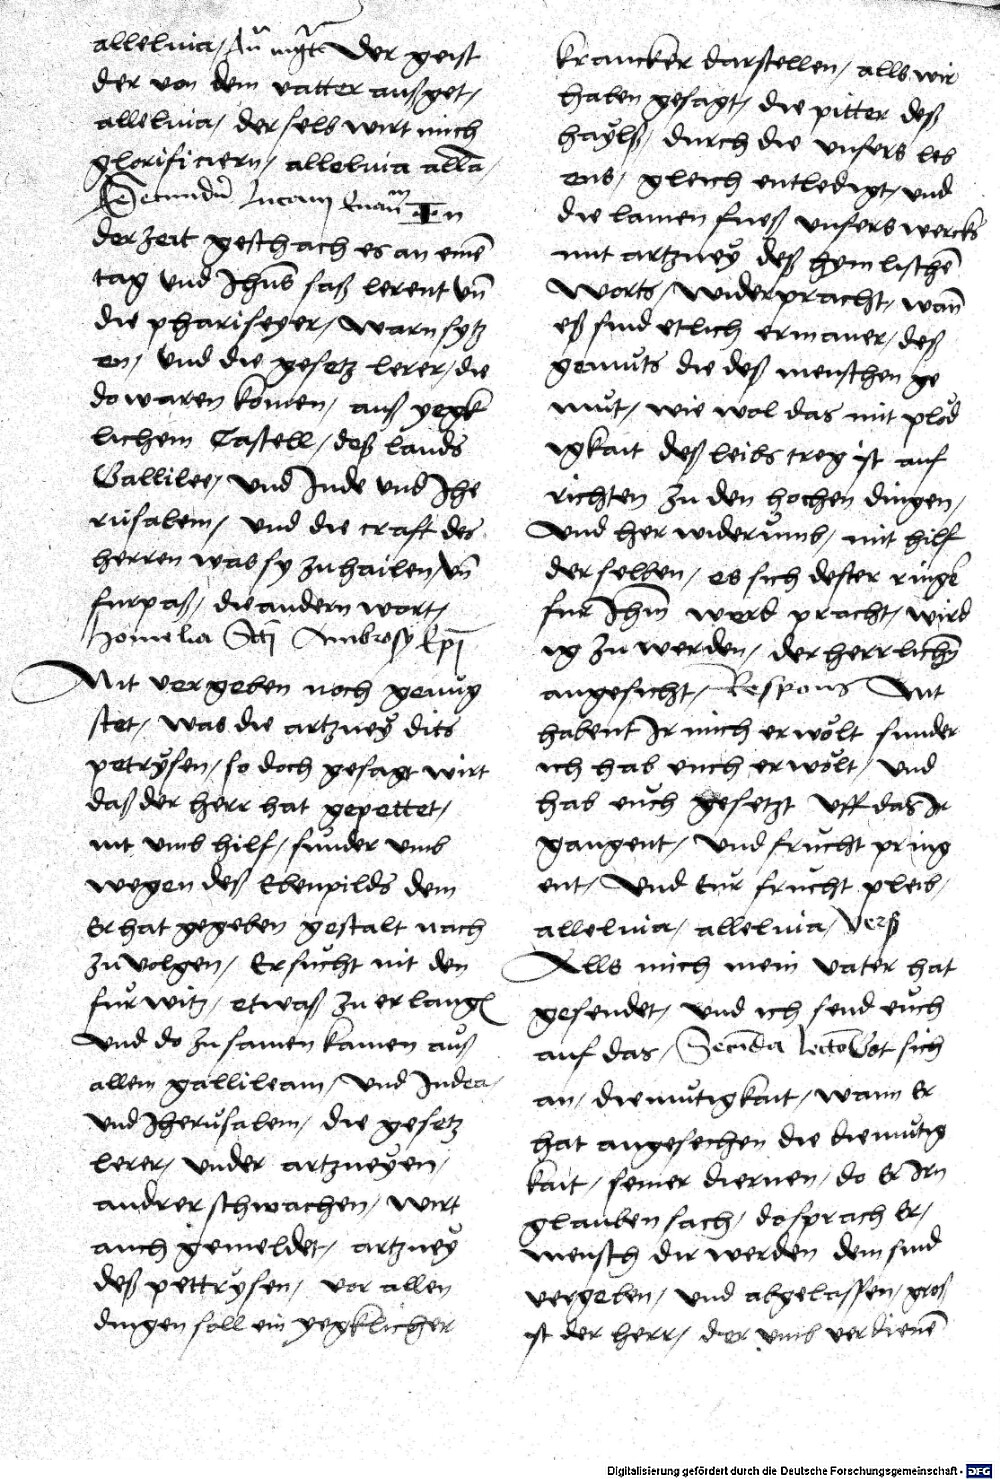 alleluia / An̄ mgt̄ Der geist
der von dem vatter außget /
alleluia / der selb wirt mich
glorificiern / alleluia all̄a /
Secundū Lucam Euan̄ In
der zeit geschach es an einē
tag vnd Jhūs saß lerent vn̄
die phariseyer / warn sytz
en / vnd die gesetz lerer / die
do waren komen / auß yegk
lichem Castell / deß lands
Gallilee / vnd Jude vnd Jhe
rusalem / vnd die craft des
herren was sy zu hailen / vn̄
furpaß / die andern wort /
Homelia Sct̄i Ambrosy Ep̄i
Nit vergeben noch genug
stet / was die artzney dits
petrysen / so doch gesagt wirt
daß der herr hat gepettet /
nit vmb hilf / sunder vmb
wegen deß Ebenpilds dem
Er hat gegeben gestalt nach
zu volgen / Er sucht nit den
fur witz / etwaß zu erlangē
vnd do zu samen kamen auß
allem gallileam / vnd Judea /
vnd Jherusalem / die gesetz
lerer / vnder artzneyen /
andrer schwachen / wirt
auch gemeldet / artzney
deß pettrysen / vor allen
dingen soll ein yegklicher
krancker darstellen / alls wir
haben gesagt / die pitter deß
hayls / durch die vnsers leb
ens / gleich entledigt / vnd
die lamen fueß vnsers wercks
mit artzney deß hymlischē
worts / widerpracht / wan̄
eß sind etlich ermaner / deß
gemuts die deß menschen ge
mut / wie wol das mit plod
igkait deß leibs treg ist auf
richten zu den hochen dingen /
vnd her widerumb / mit hilf
der selben / es sich dester ringk
fur Jhm̄ werd pracht / wird
ig zu werden / der herrlichē
angesicht / Respons Nit
habent Ir mich erwölt sunder
ich hab euch erwölt / vnd
hab euch gesetzt vff das Ir
gangent / vnd frucht pring
ent / vnd Eur frucht pleib /
alleluia / alleluia / Verß
Alls mich mein vater hat
gesendet / vnd ich send euch
auf das / Secūda Lectō Got sich
an / diemutigkait / wann Er
hat angesechen die diemutig
kait / seiner diernen / do Er Irn
glauben sach / do sprach Er /
mensch dir werden dein sund
vergeben / vnd abgelassen / groß
ist der herr / der vmb verdienē